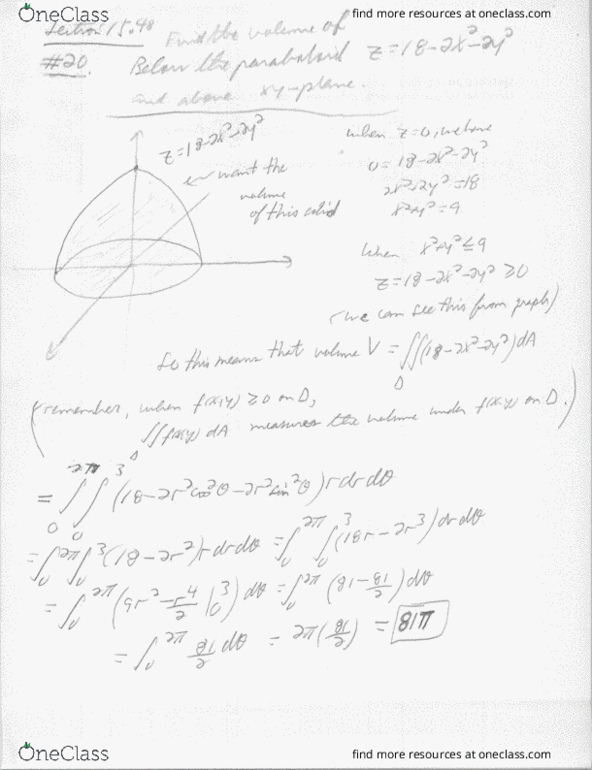 OneClass
find more resources at oneclass.com
Section 15.4
Find the volume of
#20. Below the paraboloid z=18-2x²-2y²
and above xy-plane.
z=18-2x²-2y²
want the
volume
of this solid
when z=0, we have
0=18-2x²-2y²
2x²+2y²=18
x²+y²=9
When x²+y²≤9
z=18-2x²-2y²≥0
(we can see this from graph)
So this means that volume V = ∬(18-2x²-2y²)dA
D
(remember, when f(x,y) ≥0 on D,
∬f(x,y) dA measures the volume under f(x,y) on D.)
D
= ∫₀^2π ∫₀^3 (18-2r²cos²θ-2r²sin²θ)rdrdθ
= ∫₀^2π ∫₀^3 (18-2r²)rdrdθ = ∫₀^2π ∫₀^3 (18r-2r³)drdθ
= ∫₀^2π (9r²-r⁴/2 |₀^3) dθ = ∫₀^2π (81-81/2)dθ
= ∫₀^2π 81/2 dθ = 2π(81/2) = 81π
OneClass
find more resources at oneclass.com